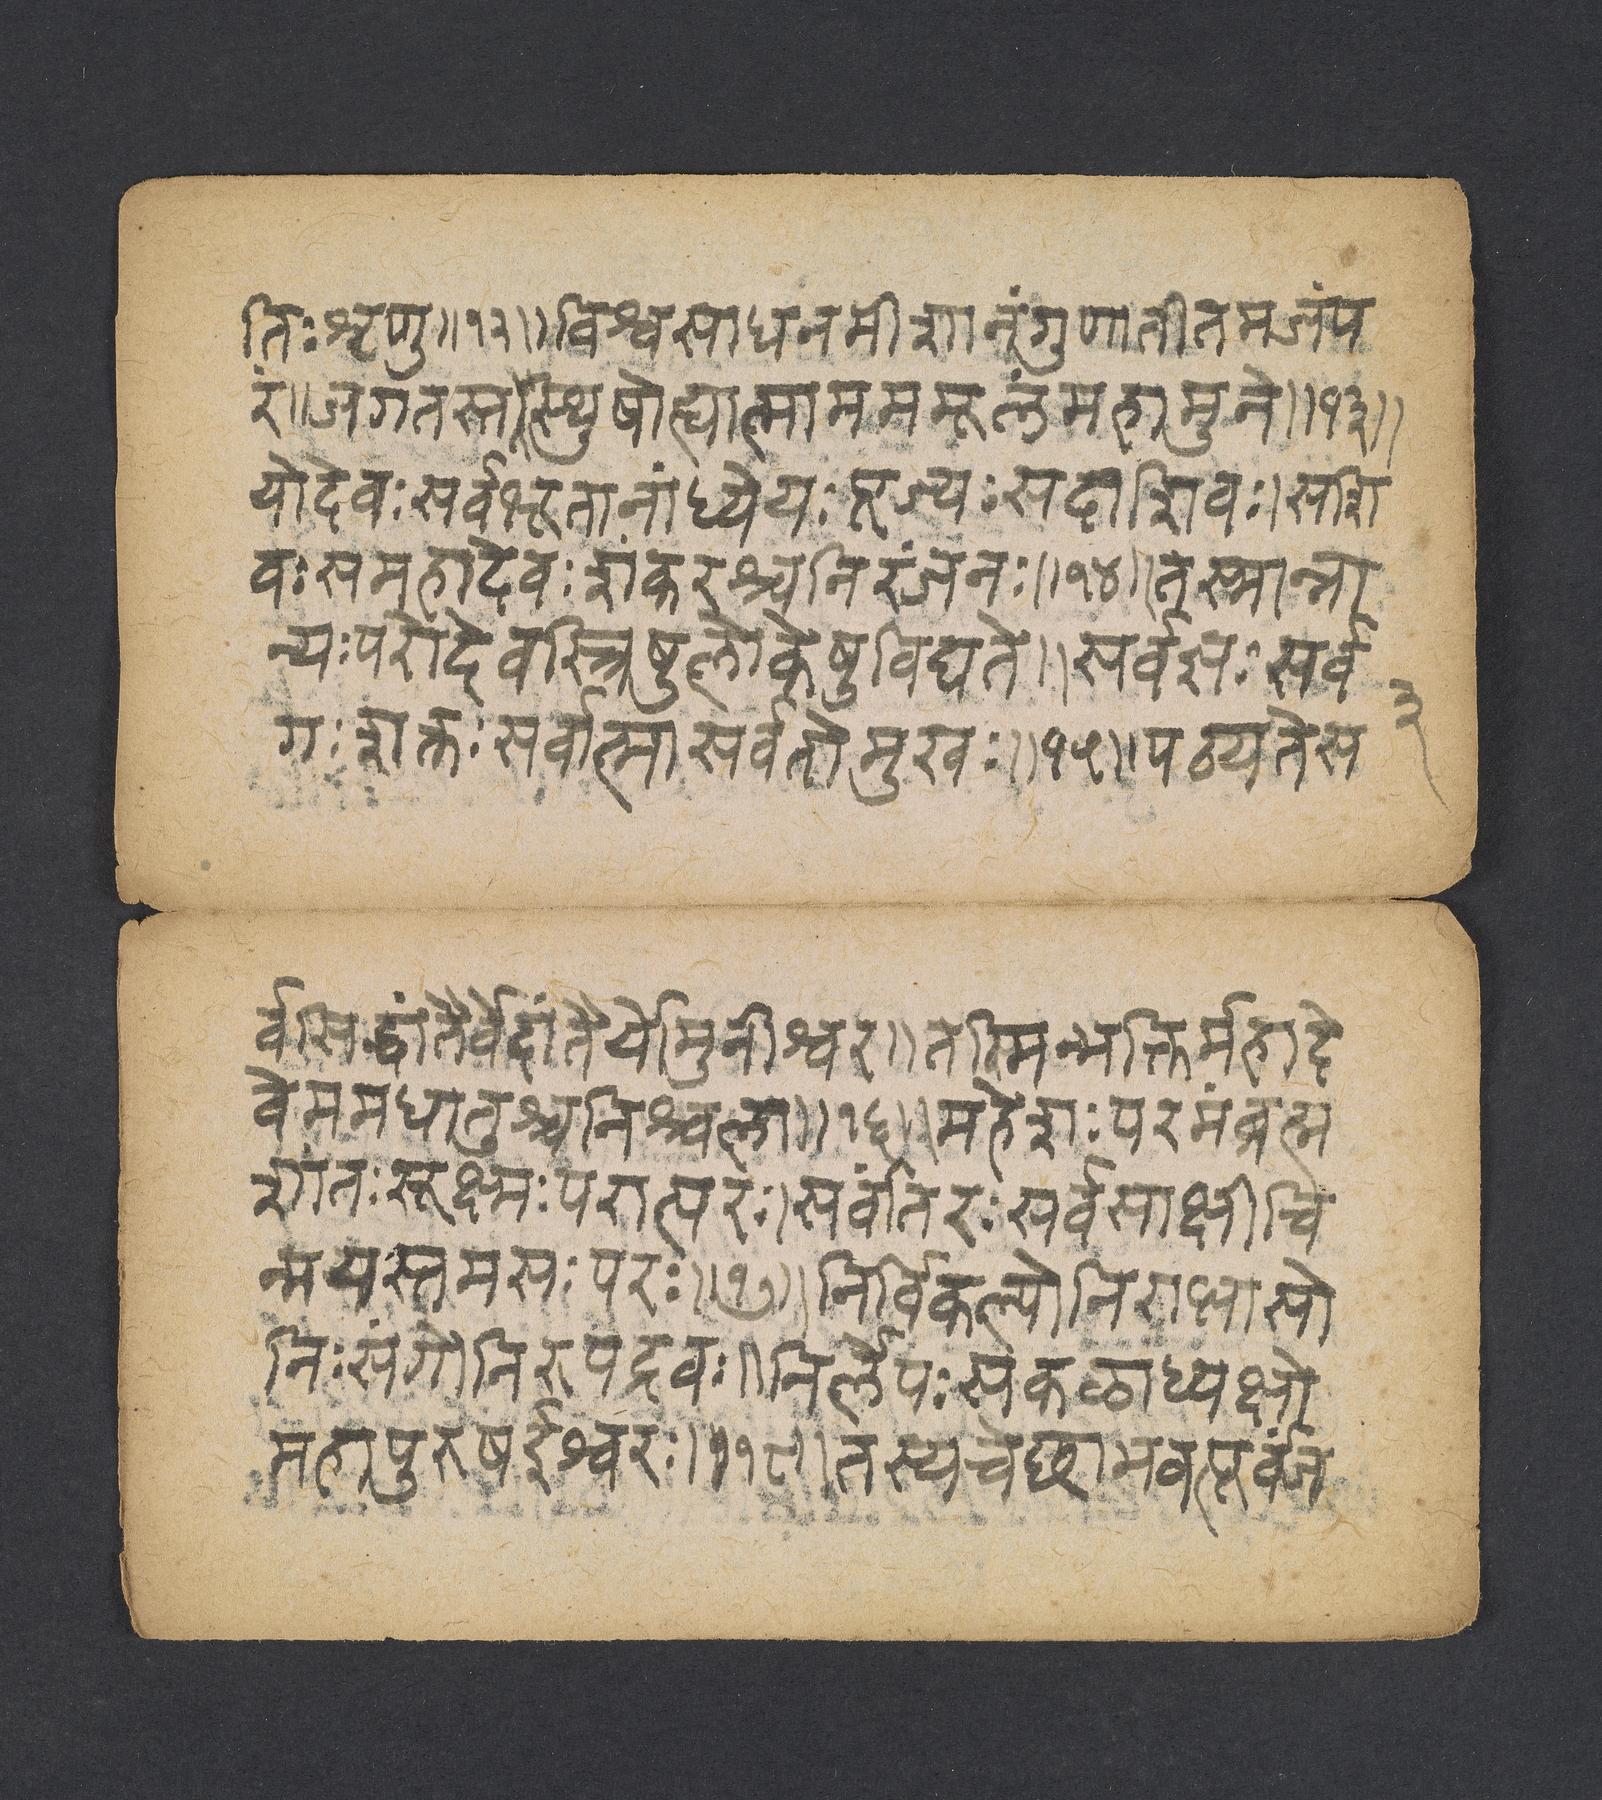 तिःश्रृणु॥१२॥विश्वसाधनमीशानंगुणातीतमजंप
रं॥जगतस्तस्थुषोह्यात्मामममूलंमहामुने॥१३॥
योदेवःसर्वभूतानांध्येयःपूज्यःसदाशिवः।सशि
वःसमहादेवःशंकरश्चनिरंजनः॥१४॥तस्मान्ना
न्यःपरोदेवस्त्रिषुलोकेषुविद्यते॥सर्वज्ञःसर्व
गःशक्तःसर्वात्मासर्वतोमुखः॥१५॥पठ्यतेस
३
र्वसिद्धांतैर्वेदांतैर्योमुनीश्वर॥तस्मिन्भक्तिर्महादे
वेममधातुश्चनिश्चला॥१६॥महेशःपरमंब्रह्म
शांतःसूक्ष्मःपरात्परः।सर्वांतरःसर्वसाक्षीचि
न्मयस्तमसःपरः॥१७॥निर्विकल्पोनिराभासो
निःसंगोनिरुपद्रवः॥निर्लेपःसकळाध्यक्षो
महापुरुषईश्वरः॥१८॥तस्यचेछाभवत्पूर्वंज